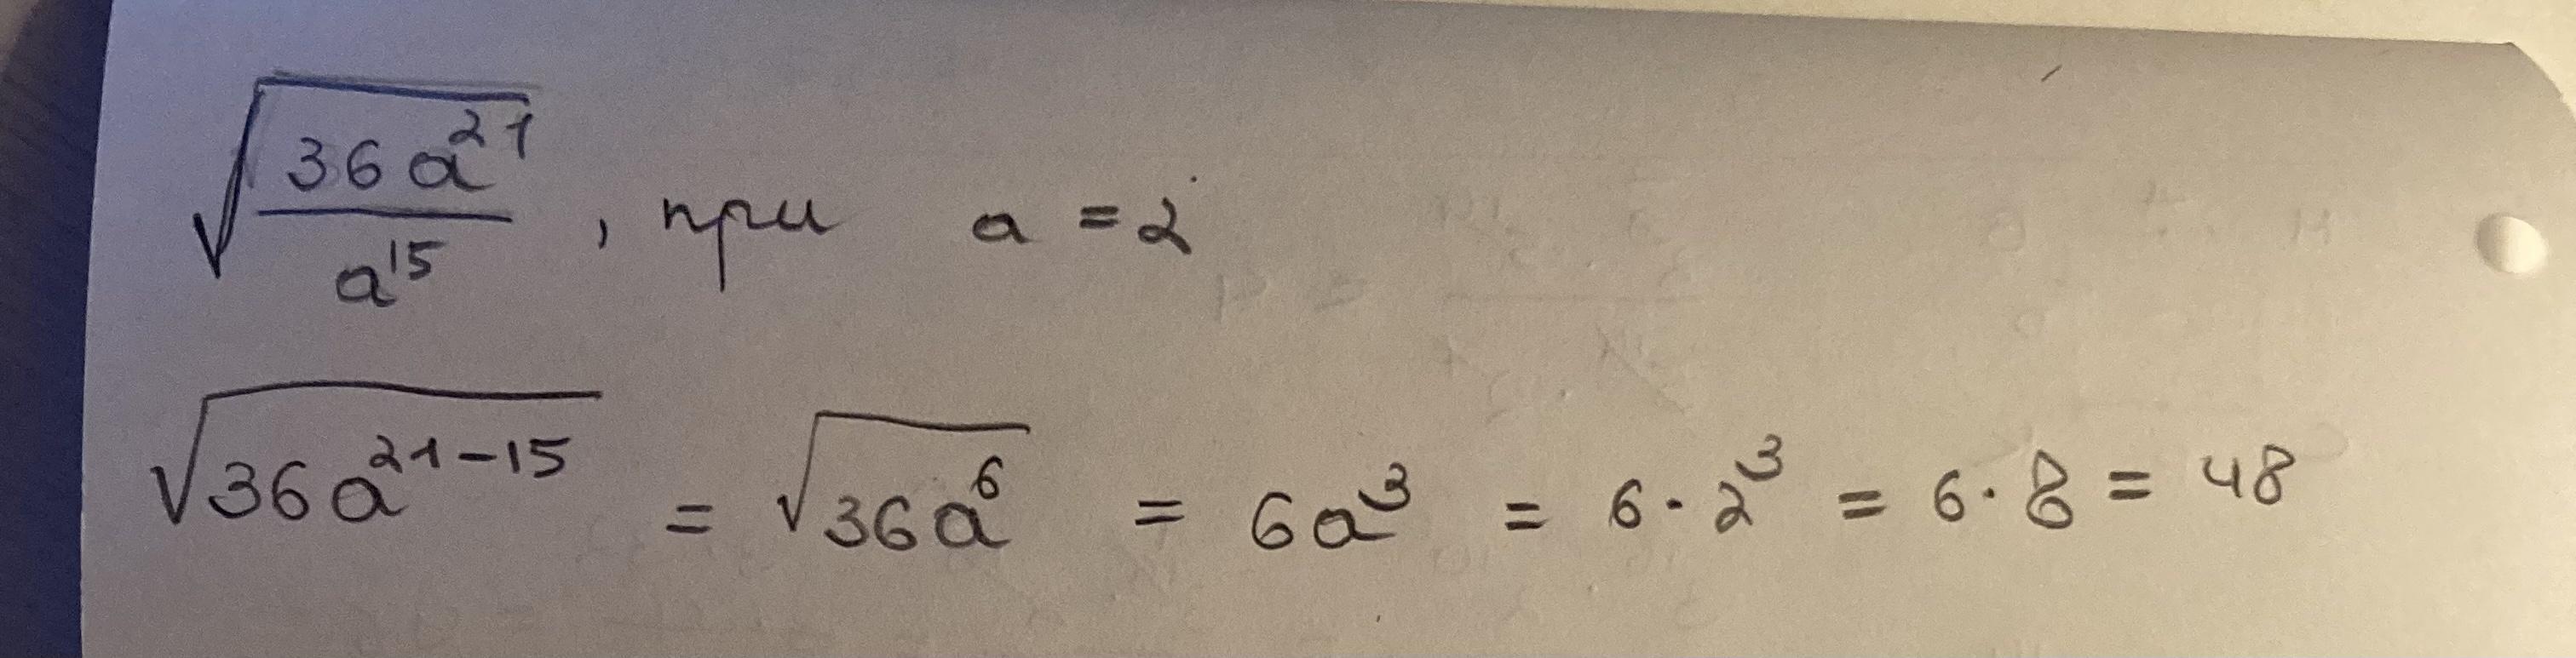 √(36a²¹/a¹⁵) , при a = 2
√(36a²¹⁻¹⁵) = √(36a⁶) = 6a³ = 6·2³ = 6·8 = 48